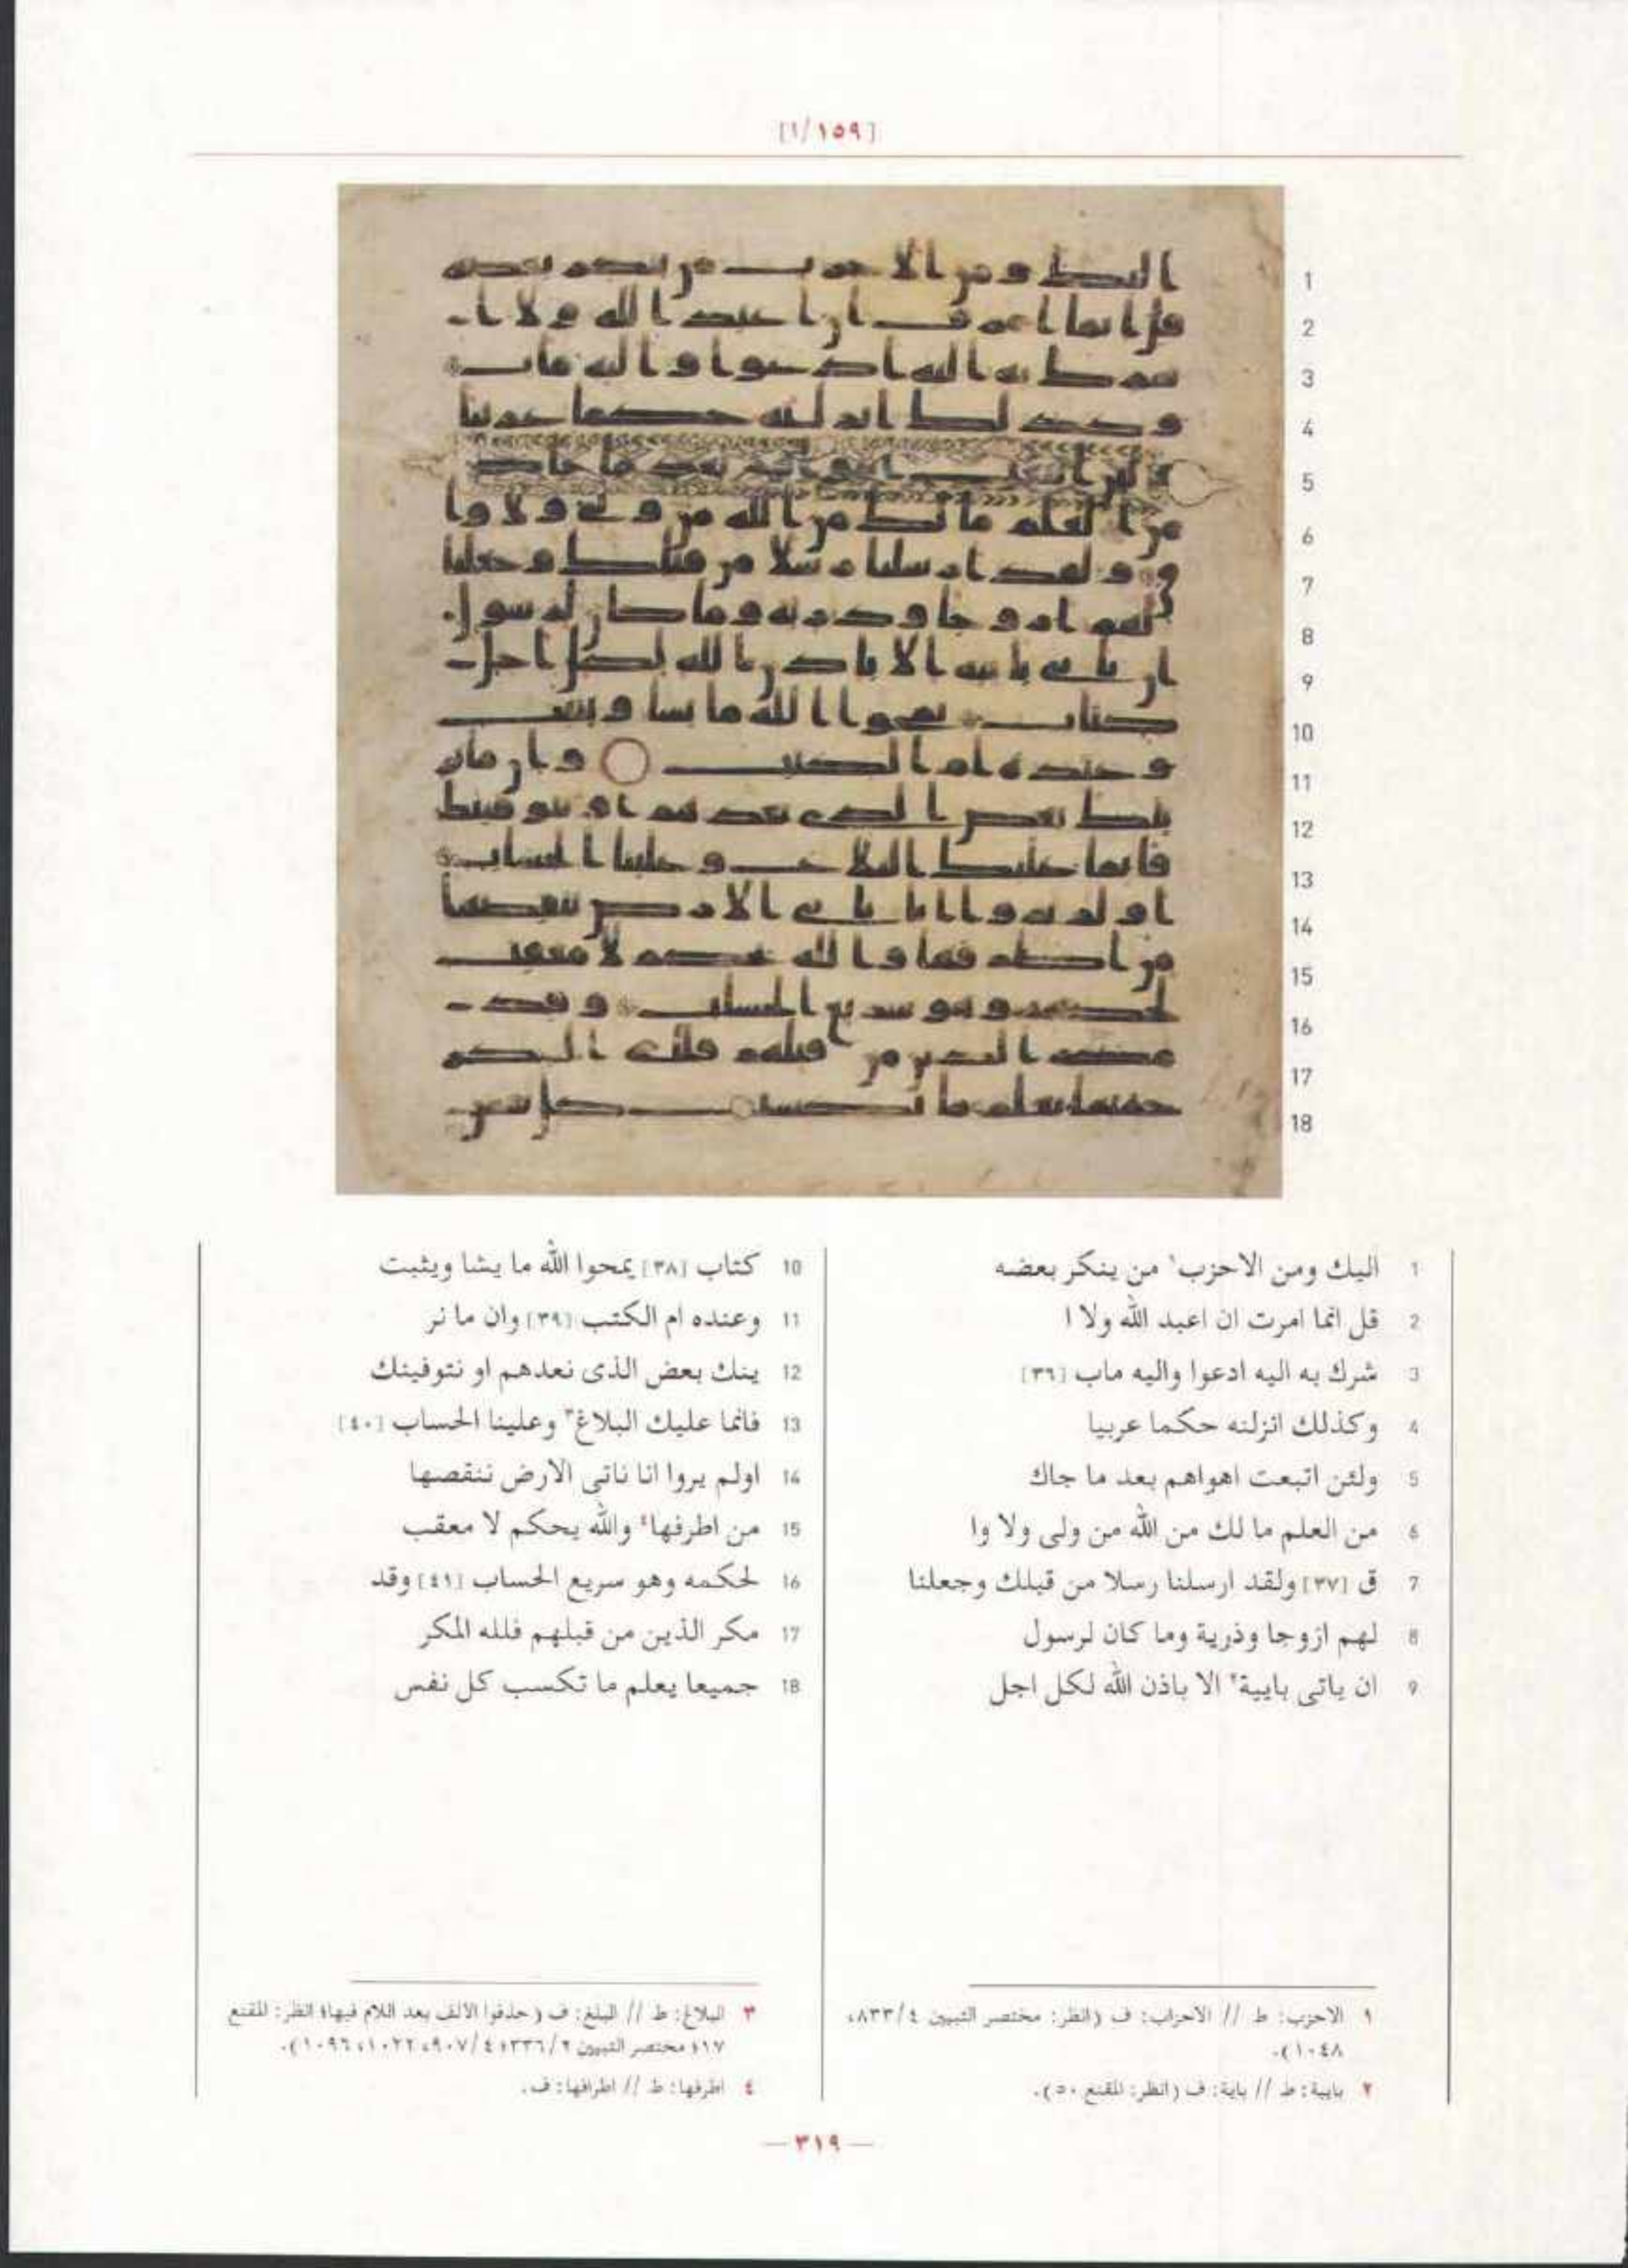 [١/١٥٩]
1 اليك ومن الاحزب١ من ينكر بعضه
2 قل انما امرت ان اعبد الله ولا ا
3 شرك به اليه ادعوا واليه ماب [٣٦]
4 وكذلك انزلنه حكما عربيا
5 ولئن اتبعت اهواهم بعد ما جاك
6 من العلم ما لك من الله من ولى ولا وا
7 ق [٣٧] ولقد ارسلنا رسلا من قبلك وجعلنا
8 لهم ازوجا وذرية وما كان لرسول
9 ان ياتى باييية٢ الا باذن الله لكل اجل
10 كتاب [٣٨] يمحوا الله ما يشا ويثبت
11 وعنده ام الكتب [٣٩] وان ما نر
12 ينك بعض الذى نعدهم او نتوفينك
13 فانما عليك البلاغ٣ وعلينا الحساب [٤٠]
14 اولم يروا انا ناتى الارض ننقصها
15 من اطرفها٤ والله يحكم لا معقب
16 لحكمه وهو سريع الحساب [٤١] وقد
17 مكر الذين من قبلهم فلله المكر
18 جميعا يعلم ما تكسب كل نفس
١ الاحزب: ط // الاحزاب: ف (انظر: مختصر التبيين ٨٣٣/٤،
١٠٤٨).
٢ باييية: ط // باية: ف (انظر: المقنع ٥٠).
٣ البلاغ: ط // البلغ: ف (حذفوا الالف بعد اللام فيها؛ انظر: المقنع
١٧؛ مختصر التبيين ٣٣٦/٢؛ ٩٠٧/٤، ١٠٢٢، ١٠٩٦).
٤ اطرفها: ط // اطرافها: ف.
— ٣١٩ —